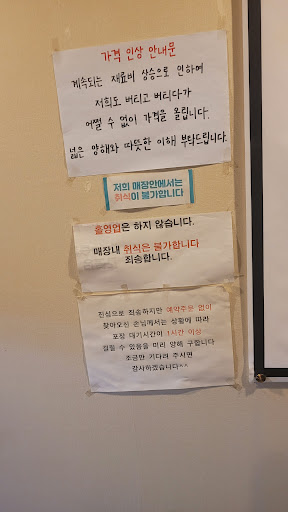 가격 인상 안내문
계속되는 재료비 상승으로 인하여
저희도 버티고 버티다가
어쩔 수 없이 가격을 올립니다.
넓은 양해와 따뜻한 이해 부탁드립니다.
저의 매장안에서는
취식이 불가합니다
홀영업은 하지 않습니다.
매장내 취식은 불가합니다
죄송합니다.
진심으로 죄송하지만 예약주문 없이
찾아오신 손님께서는 상황에 따라
포장 대기시간이 1시간 이상
걸릴 수 있음을 미리 양해 구합니다
조금만 기다려 주시면
감사하겠습니다^^